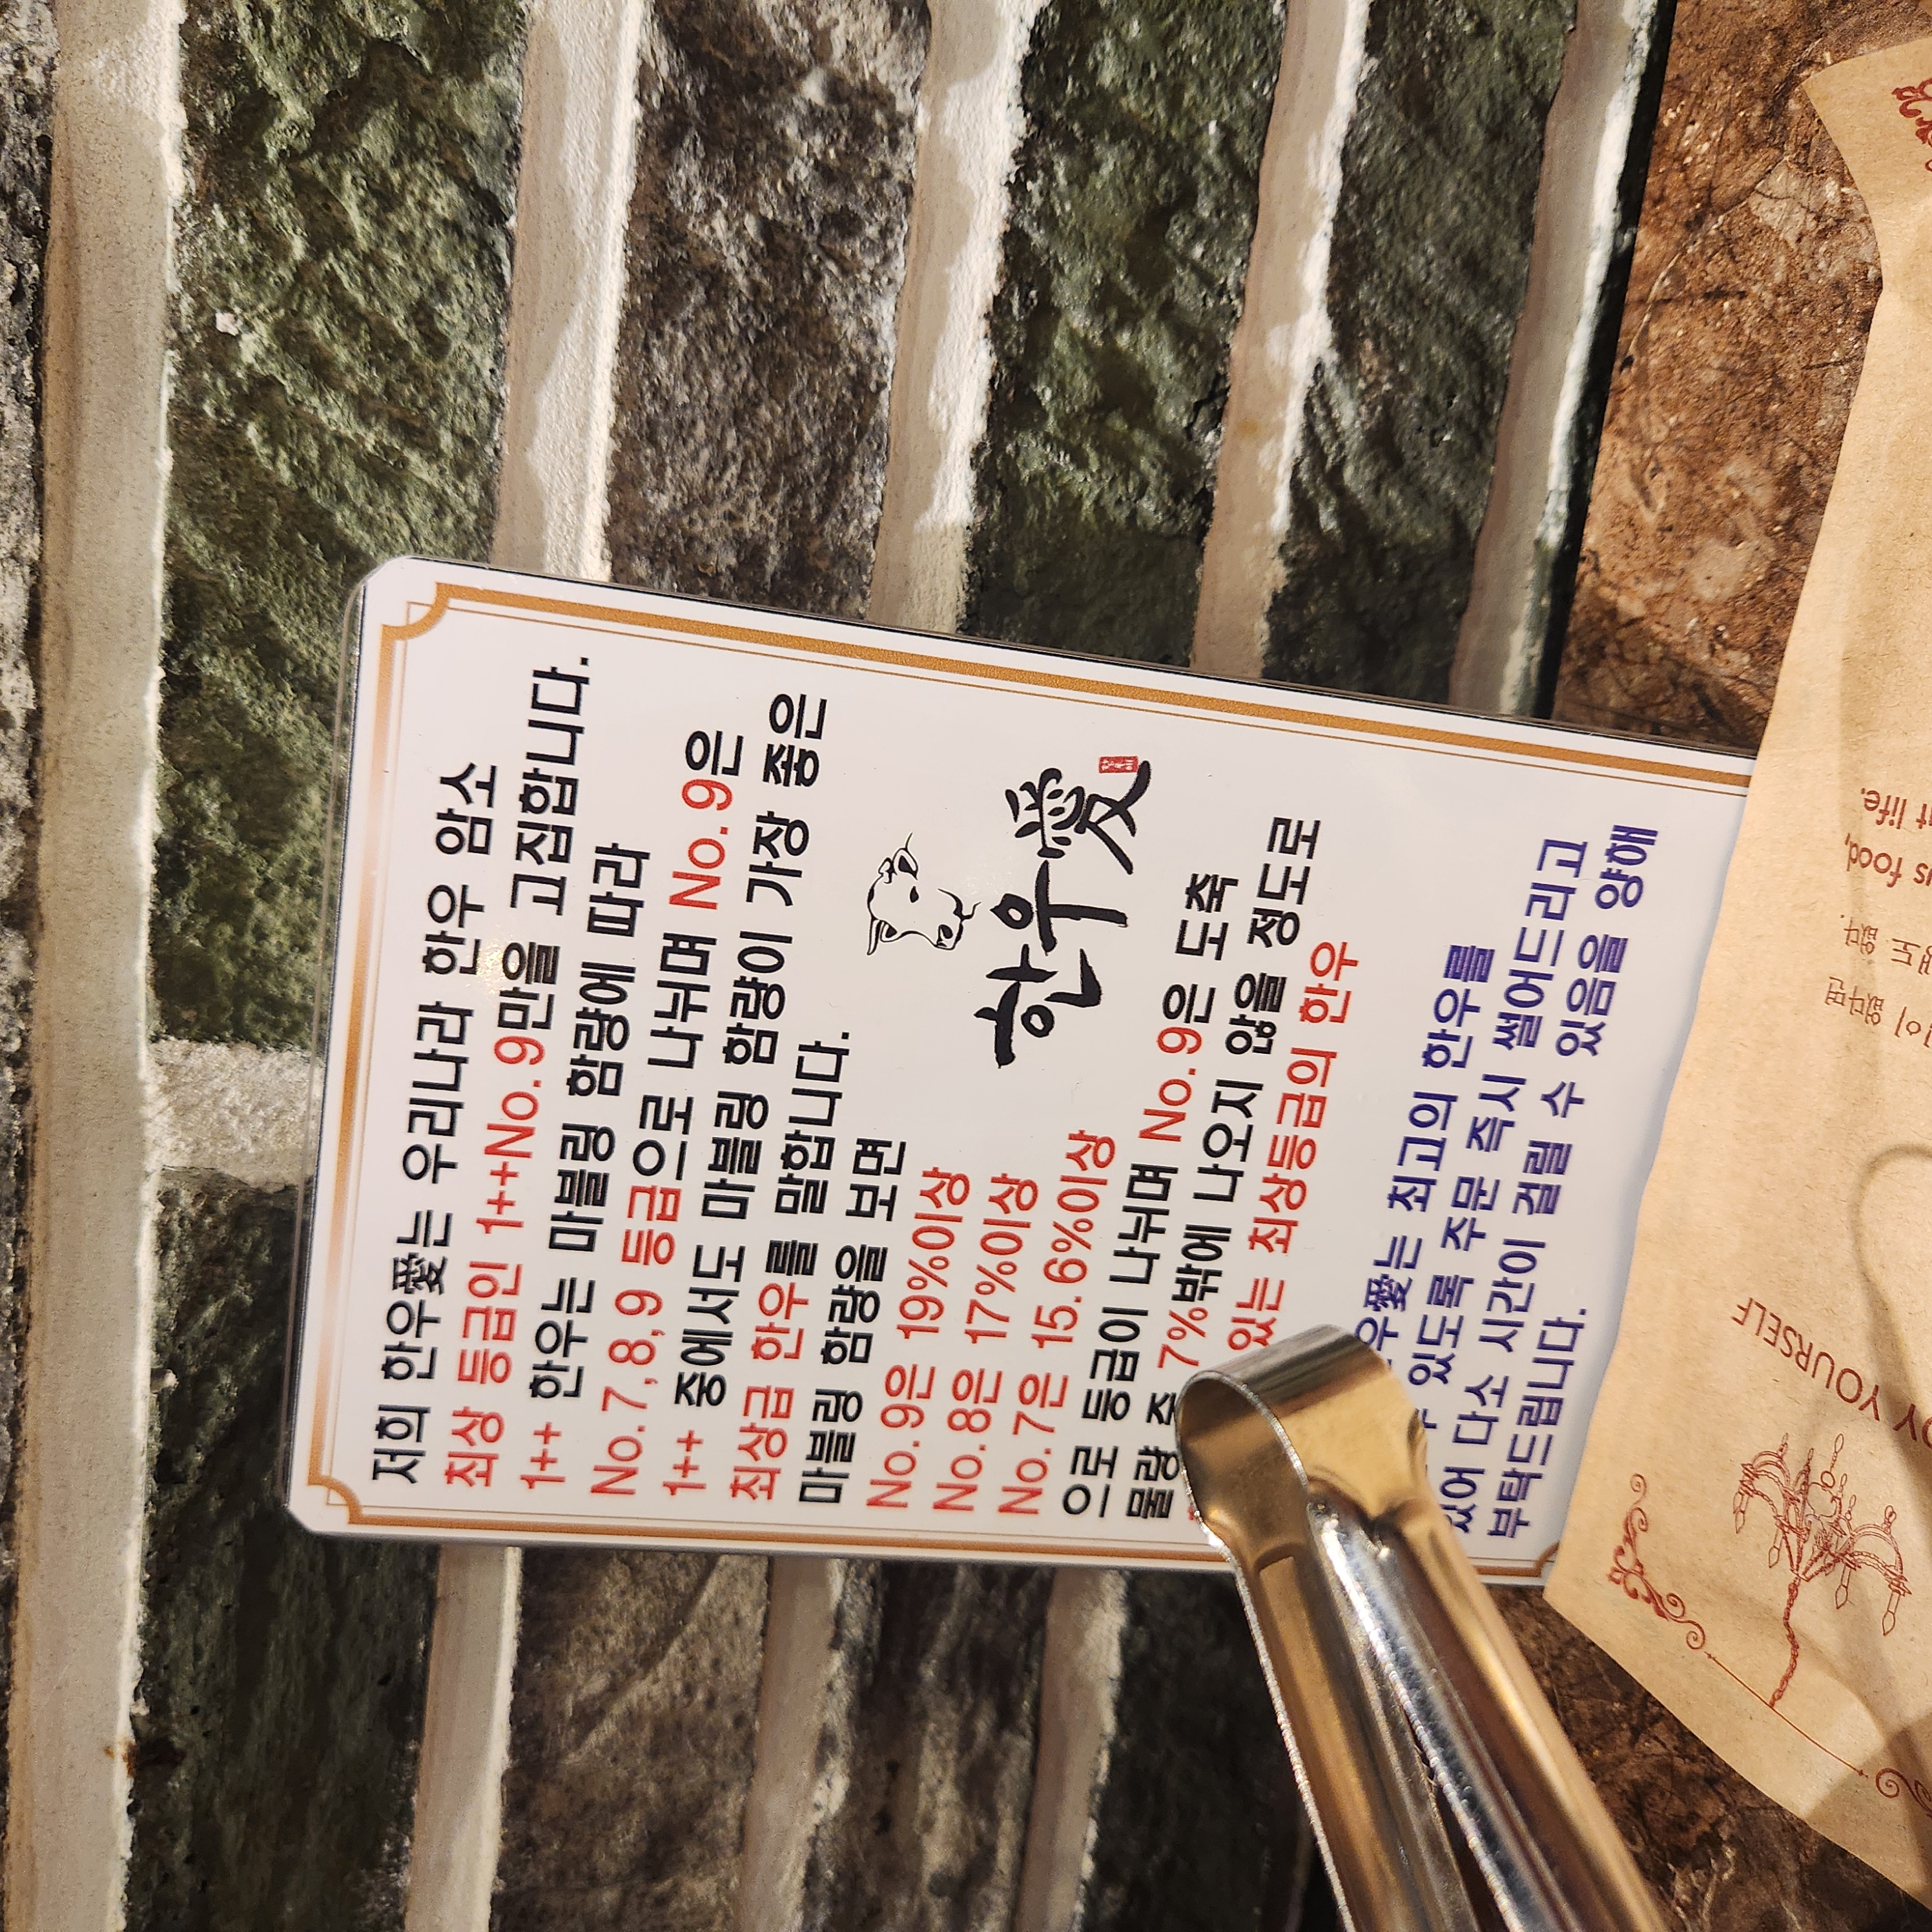 저희 한우愛는 우리나라 한우 암소
최상 등급인 1++No.9만을 고집합니다.
1++ 한우는 마블링 함량에 따라
No.7,8,9 등급으로 나뉘며 No.9은
1++ 중에서도 마블링 함량이 가장 좋은
최상급 한우를 말합니다.
마블링 함량을 보면
No.9은 19%이상
No.8은 17%이상
No.7은 15.6%이상
한우愛
으로 등급이 나뉘며 No.9은 도축
물량 중 7%밖에 나오지 않을 정도로
있는 최상등급의 한우
우愛는 최고의 한우를
있도록 주문 즉시 썰어드리고
있어 다소 시간이 걸릴 수 있음을 양해
부탁드립니다.
YOURSELF
없다면
없다.
food,
life.